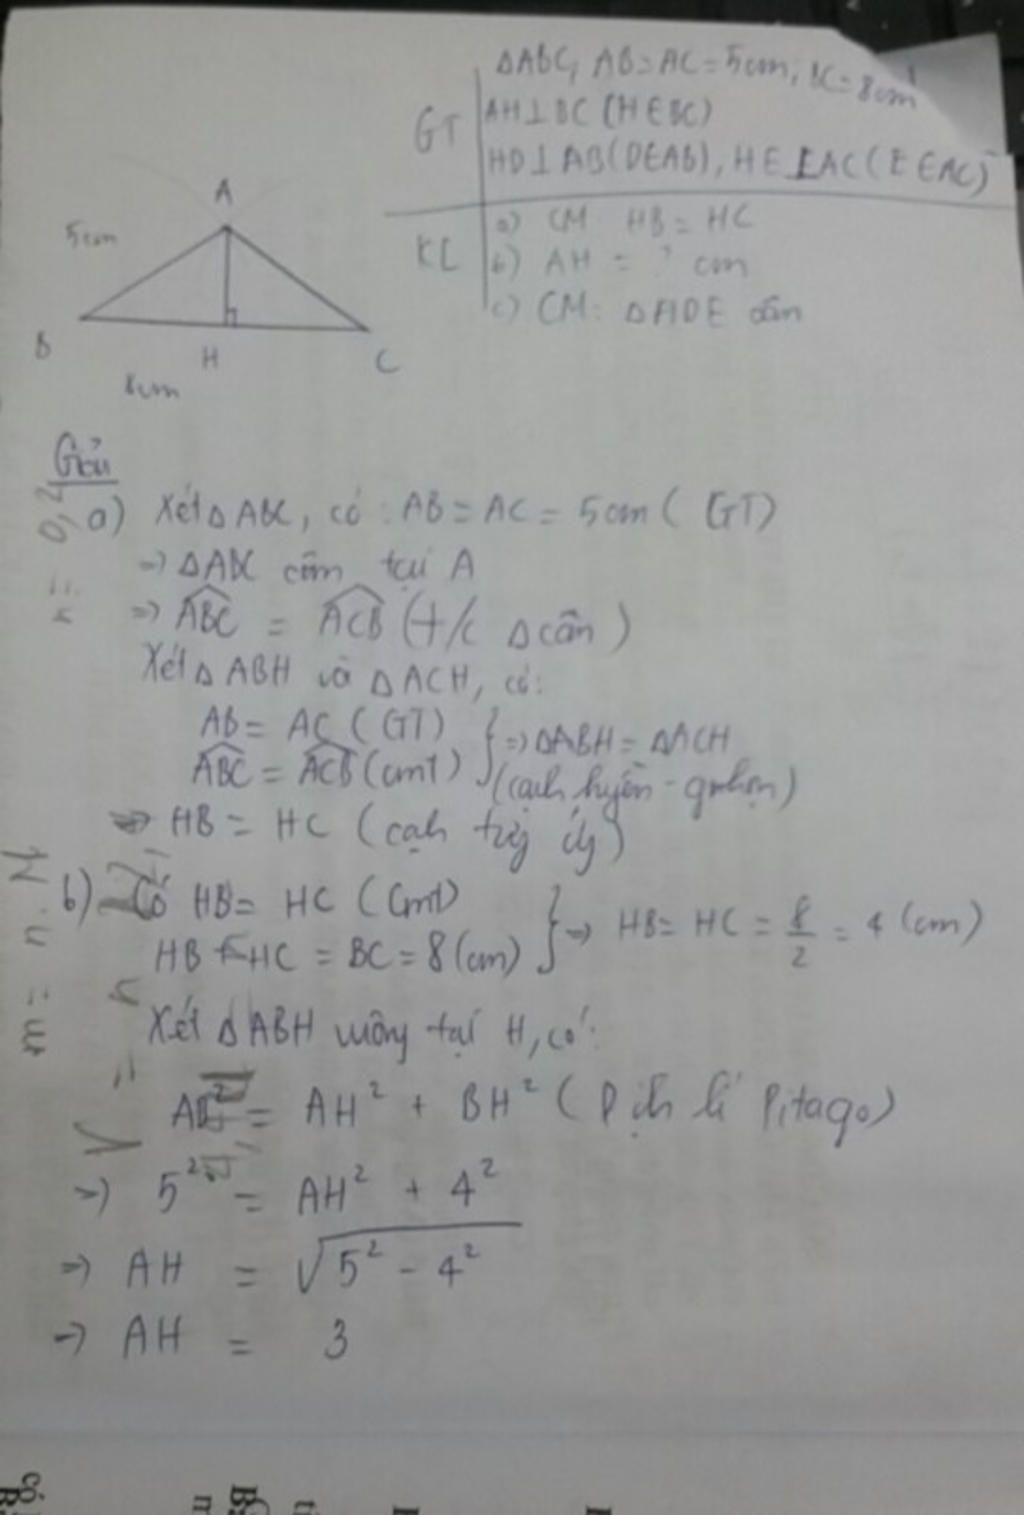 ΔABC, AB = AC = 5cm; BC = 8cm
GT
AH ⊥ BC (H ∈ BC)
HD ⊥ AB (D ∈ AB), HE ⊥ AC (E ∈ AC)
KL
a) CM HB = HC
b) AH = ? cm
c) CM: ΔHDE cân
A
5cm
B
H
C
8cm
Giải
a) Xét Δ ABC, có: AB = AC = 5cm (GT)
=> ΔABC cân tại A
=> \widehat{ABC} = \widehat{ACB} (t/c Δ cân)
Xét Δ ABH và Δ ACH, có:
AB = AC (GT)
\widehat{ABC} = \widehat{ACB} (cmt)
} => ΔABH = ΔACH
(cạnh huyền - g.nhọn)
=> HB = HC (cạnh tg ứg)
b) Có HB = HC (Cmt)
HB + HC = BC = 8 (cm)
} => HB = HC = 8/2 = 4 (cm)
Xét Δ ABH vuông tại H, có:
AB² = AH² + BH² (Định lí Pitago)
=> 5² = AH² + 4²
=> AH = √(5² - 4²)
=> AH = 3